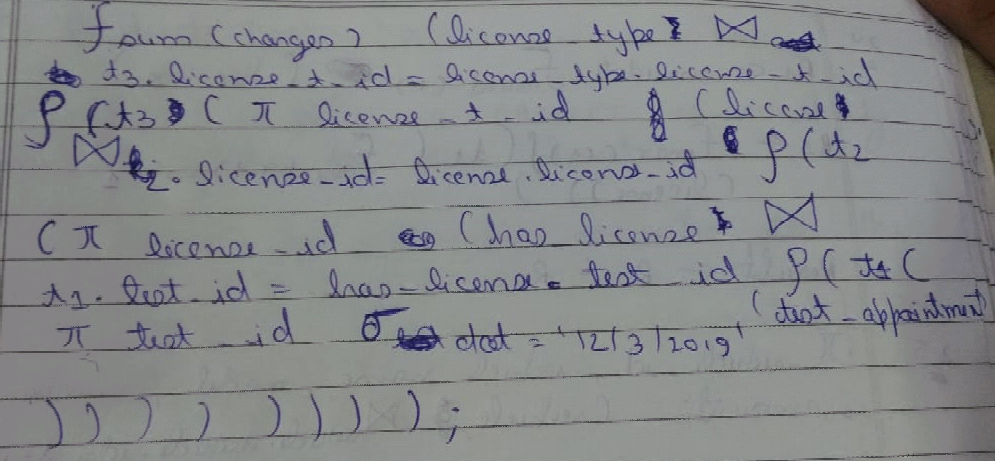 foum (changes) (license type ⋈
t3. license-t-id = license-type. license-t-id
ρ (t3 ( π license-t-id (license
⋈ t2. license-id = license.license-id ρ (t2
( π license-id (has license ⋈
t1. test-id = has-license. test id ρ ( t1 (
π test-id σ dot = '12/3/2019' (test-appointment
) ) ) ) ) ) ) ) ;